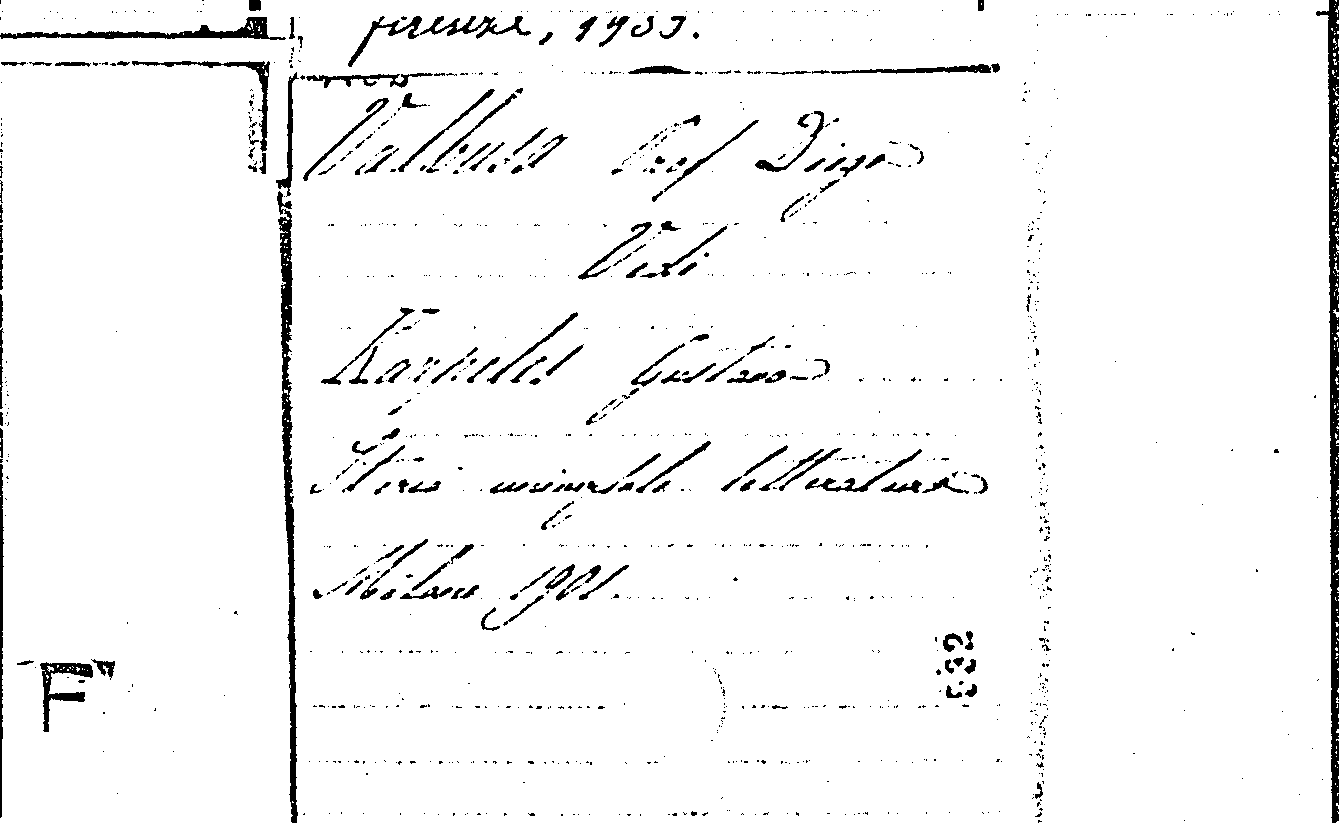 Firenze, 1933.
Valbusa Prof Diego
Vedi
Karpeles Gustavo
Storia universale letteratura
Milano 1901.
532
F